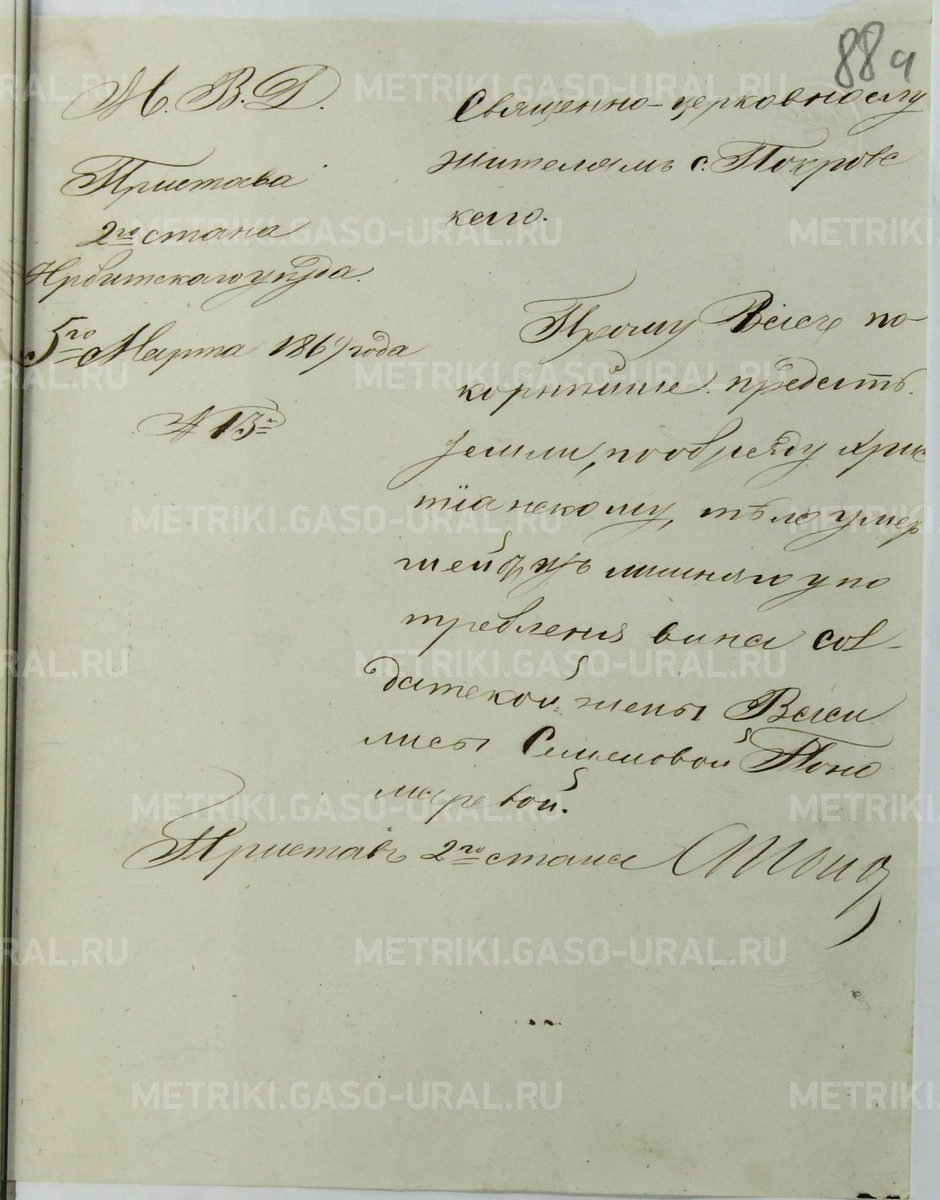 88а
М. В. Д.
Пристава
2го стана
Ирбитского уѣзда.
5го Марта 186 года
№ 13
Священно-церковнослу
жителямъ с. Покровс
каго.
Прошу Васъ по-
корнѣйше предать
земли, по обряду хрис
тіанскому, тѣло умер
шей отъ лишняго упо
требленія вина сол-
датской жены Васи
лисы Семеновой Поно
маревой.
Приставъ 2го стана
METRIKI.GASO-URAL.RU